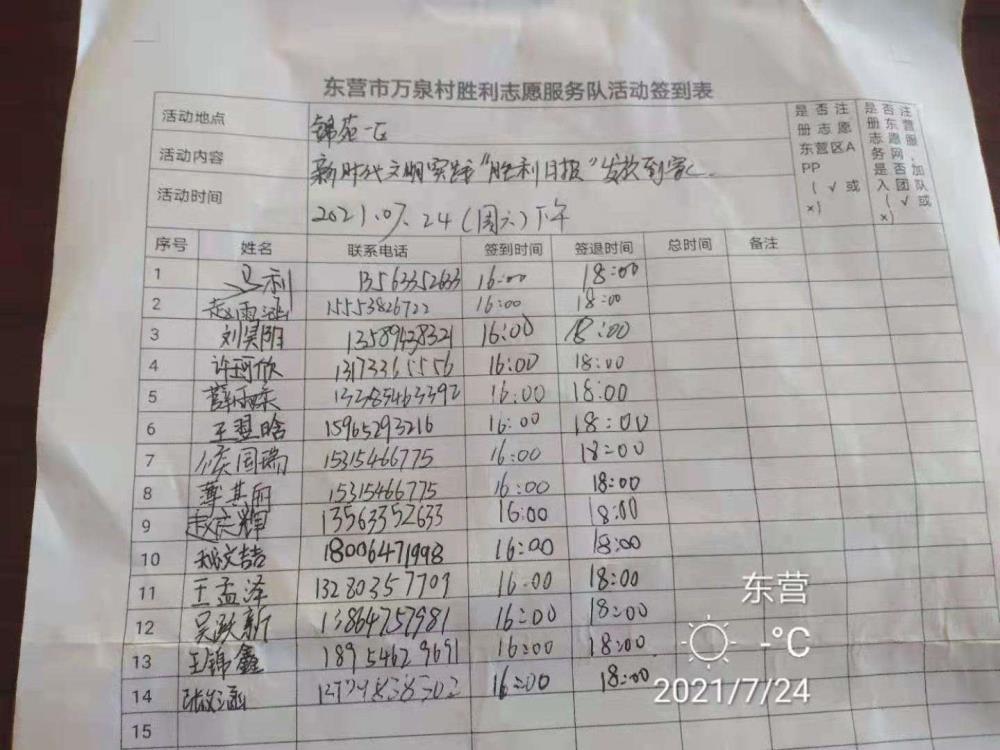 东营市万泉村胜利志愿服务队活动签到表
活动地点 锦苑一区
活动内容 新时代文明实践“胜利日报”发放到家
活动时间 2021.07.24(周六)下午
是否注册志愿东营区APP(√或×)
是否注册东营志愿服务网,是否加入团队(√或×)
序号 姓名 联系电话 签到时间 签退时间 总时间 备注
1 马利 13563352633 16:00 18:00
2 赵雨涵 15553826722 16:00 18:00
3 刘昊阳 13589438321 16:00 18:00
4 许珂欣 13173365556 16:00 18:00
5 16:00 18:00
6 王翌晗 15965293216 16:00 18:00
7 侯国瑞 15315466775 16:00 18:00
8 薄其丽 15315466775 16:00 18:00
9 赵庆辉 13563352633 16:00 18:00
10 18006471998 16:00 18:00
11 王孟泽 13280357709 16:00 18:00
12 吴跃新 13864757981 16:00 18:00
13 王锦鑫 18954629691 16:00 18:00
14 16:00 18:00
15
东营
-°C
2021/7/24